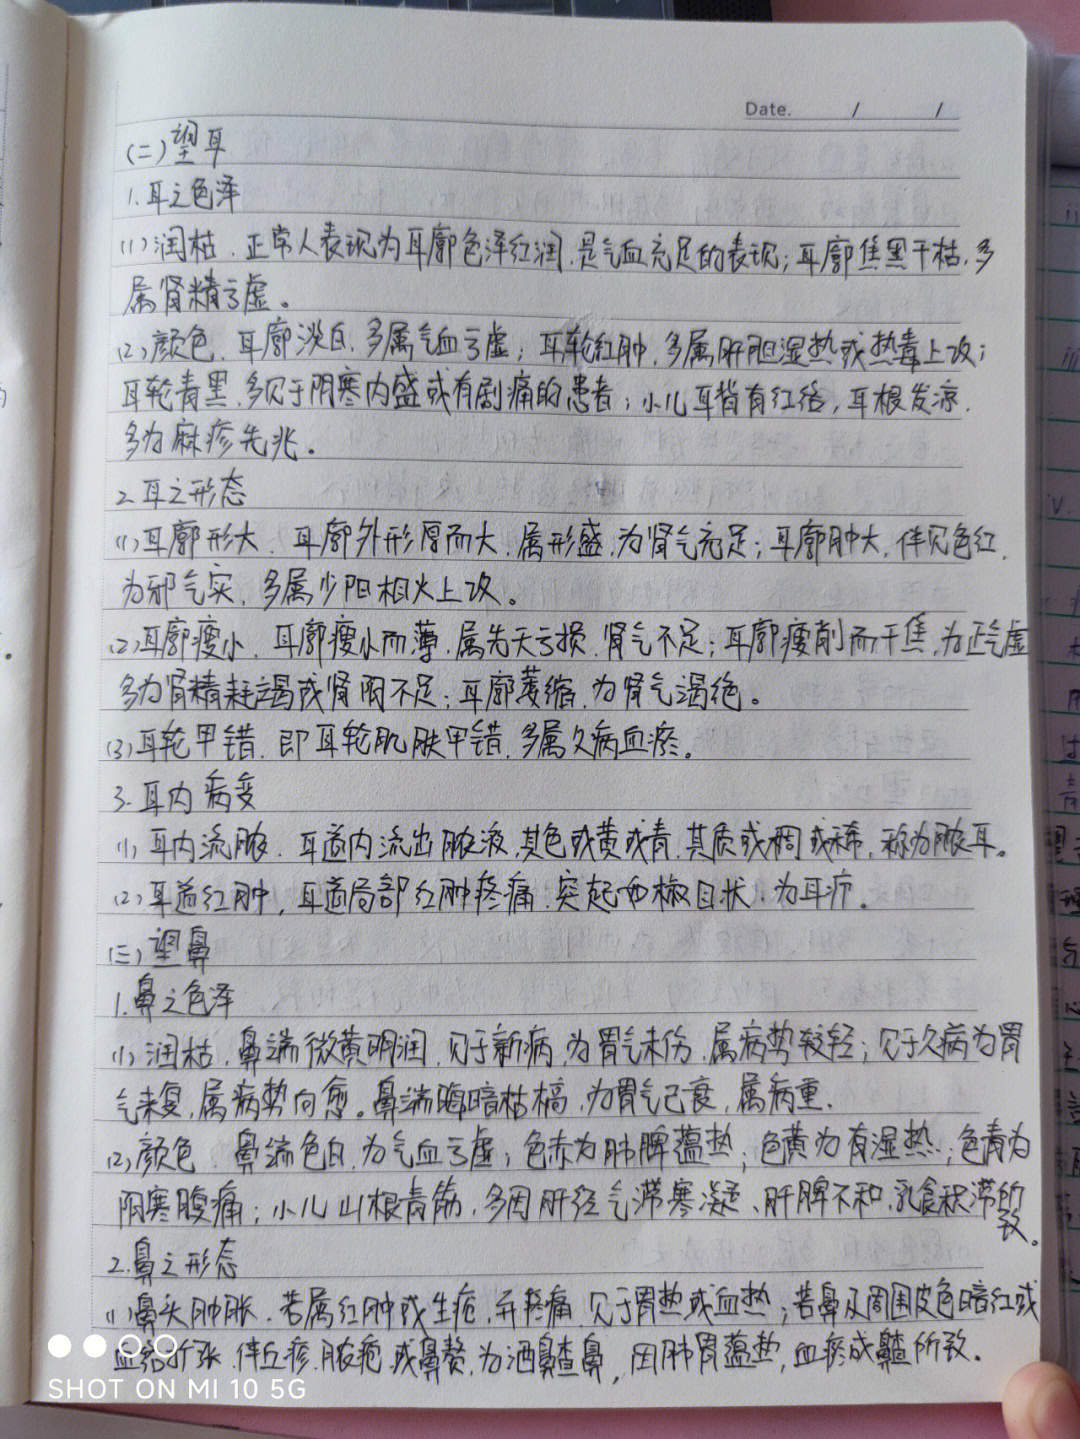 Date. / /
(二)望耳
1.耳之色泽
(1)润枯.正常人表现为耳廓色泽红润.是气血充足的表现;耳廓焦黑干枯.多
属肾精亏虚。
(2)颜色.耳廓淡白.多属气血亏虚;耳轮红肿.多属肝胆湿热或热毒上攻;
耳轮青黑.多见于阴寒内盛或有剧痛的患者;小儿耳背有红络,耳根发凉.
多为麻疹先兆。
2.耳之形态
(1)耳廓形大.耳廓外形厚而大.属形盛.为肾气充足;耳廓肿大.伴见色红.
为邪气实.多属少阳相火上攻。
(2)耳廓瘦小.耳廓瘦小而薄.属先天亏损.肾气不足;耳廓瘦削而干焦.为正气虚
多为肾精耗竭或肾阴不足;耳廓萎缩.为肾气渴绝。
(3)耳轮甲错.即耳轮肌肤甲错.多属久病血瘀。
3.耳内病变
(1)耳内流脓.耳道内流出脓液.其色或黄或青.其质或稠或稀.称为脓耳。
(2)耳道红肿,耳道局部红肿疼痛.突起如椒目状.为耳疔.
(三)望鼻
1.鼻之色泽
(1)润枯.鼻端微黄明润.见于新病.为胃气未伤.属病势较轻;见于久病为胃
气来复,属病势向愈。鼻端晦暗枯槁.为胃气已衰,属病重.
(2)颜色.鼻端色白.为气血亏虚;色赤为肺脾蕴热;色黄为有湿热;色青为
阴寒腹痛;小儿山根青筋.多因肝经气滞寒凝、肝脾不和.乳食积滞所致。
2.鼻之形态
(1)鼻头肿胀.若属红肿或生疮.并疼痛.见于胃热或血热;若鼻及周围皮色暗红或
血络扩张.伴丘疹.脓疱.或鼻赘.为酒齄鼻,因肺胃蕴热,血瘀成齄所致.
SHOT ON MI 10 5G